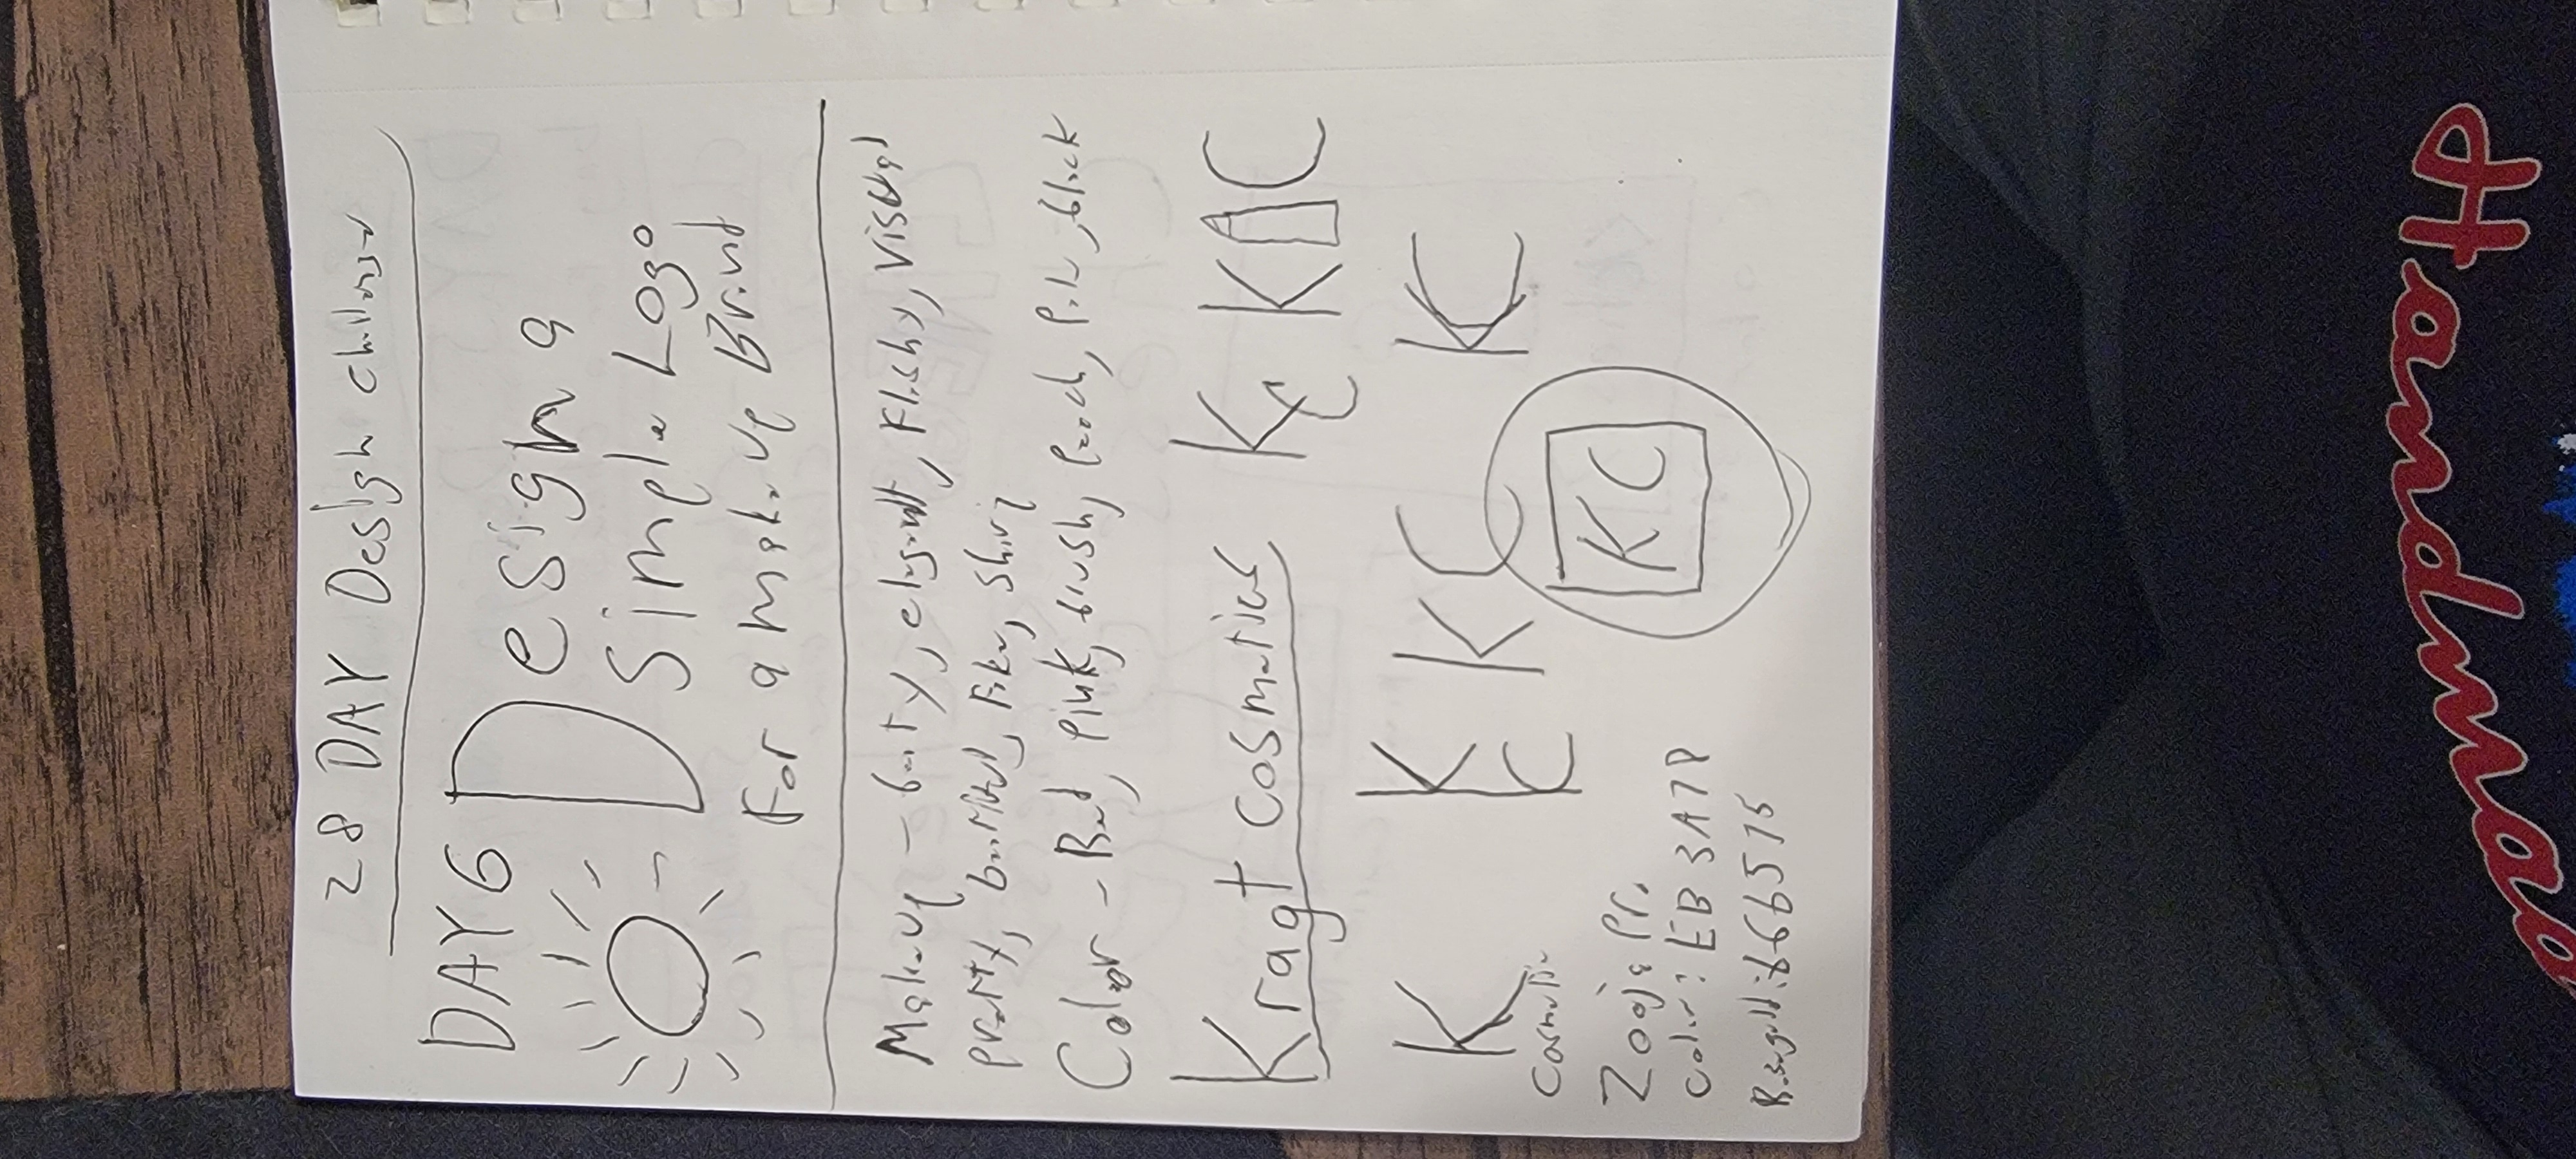 28 DAY Design Challenge
DAY 6
Design a
Simple Logo
For a makeup Brand
Makeup - beauty, elegant, Flashy, Visual
pretty, beautiful, Fake, Shiny
Color - Red, Pink, blush, Peach, Pale, black
Kragt cosmetics KC K C
K KC KC KC
Cosmetic
KC
Zooja Pro
Color: EB3A78
Rosegold: b66576
Handma